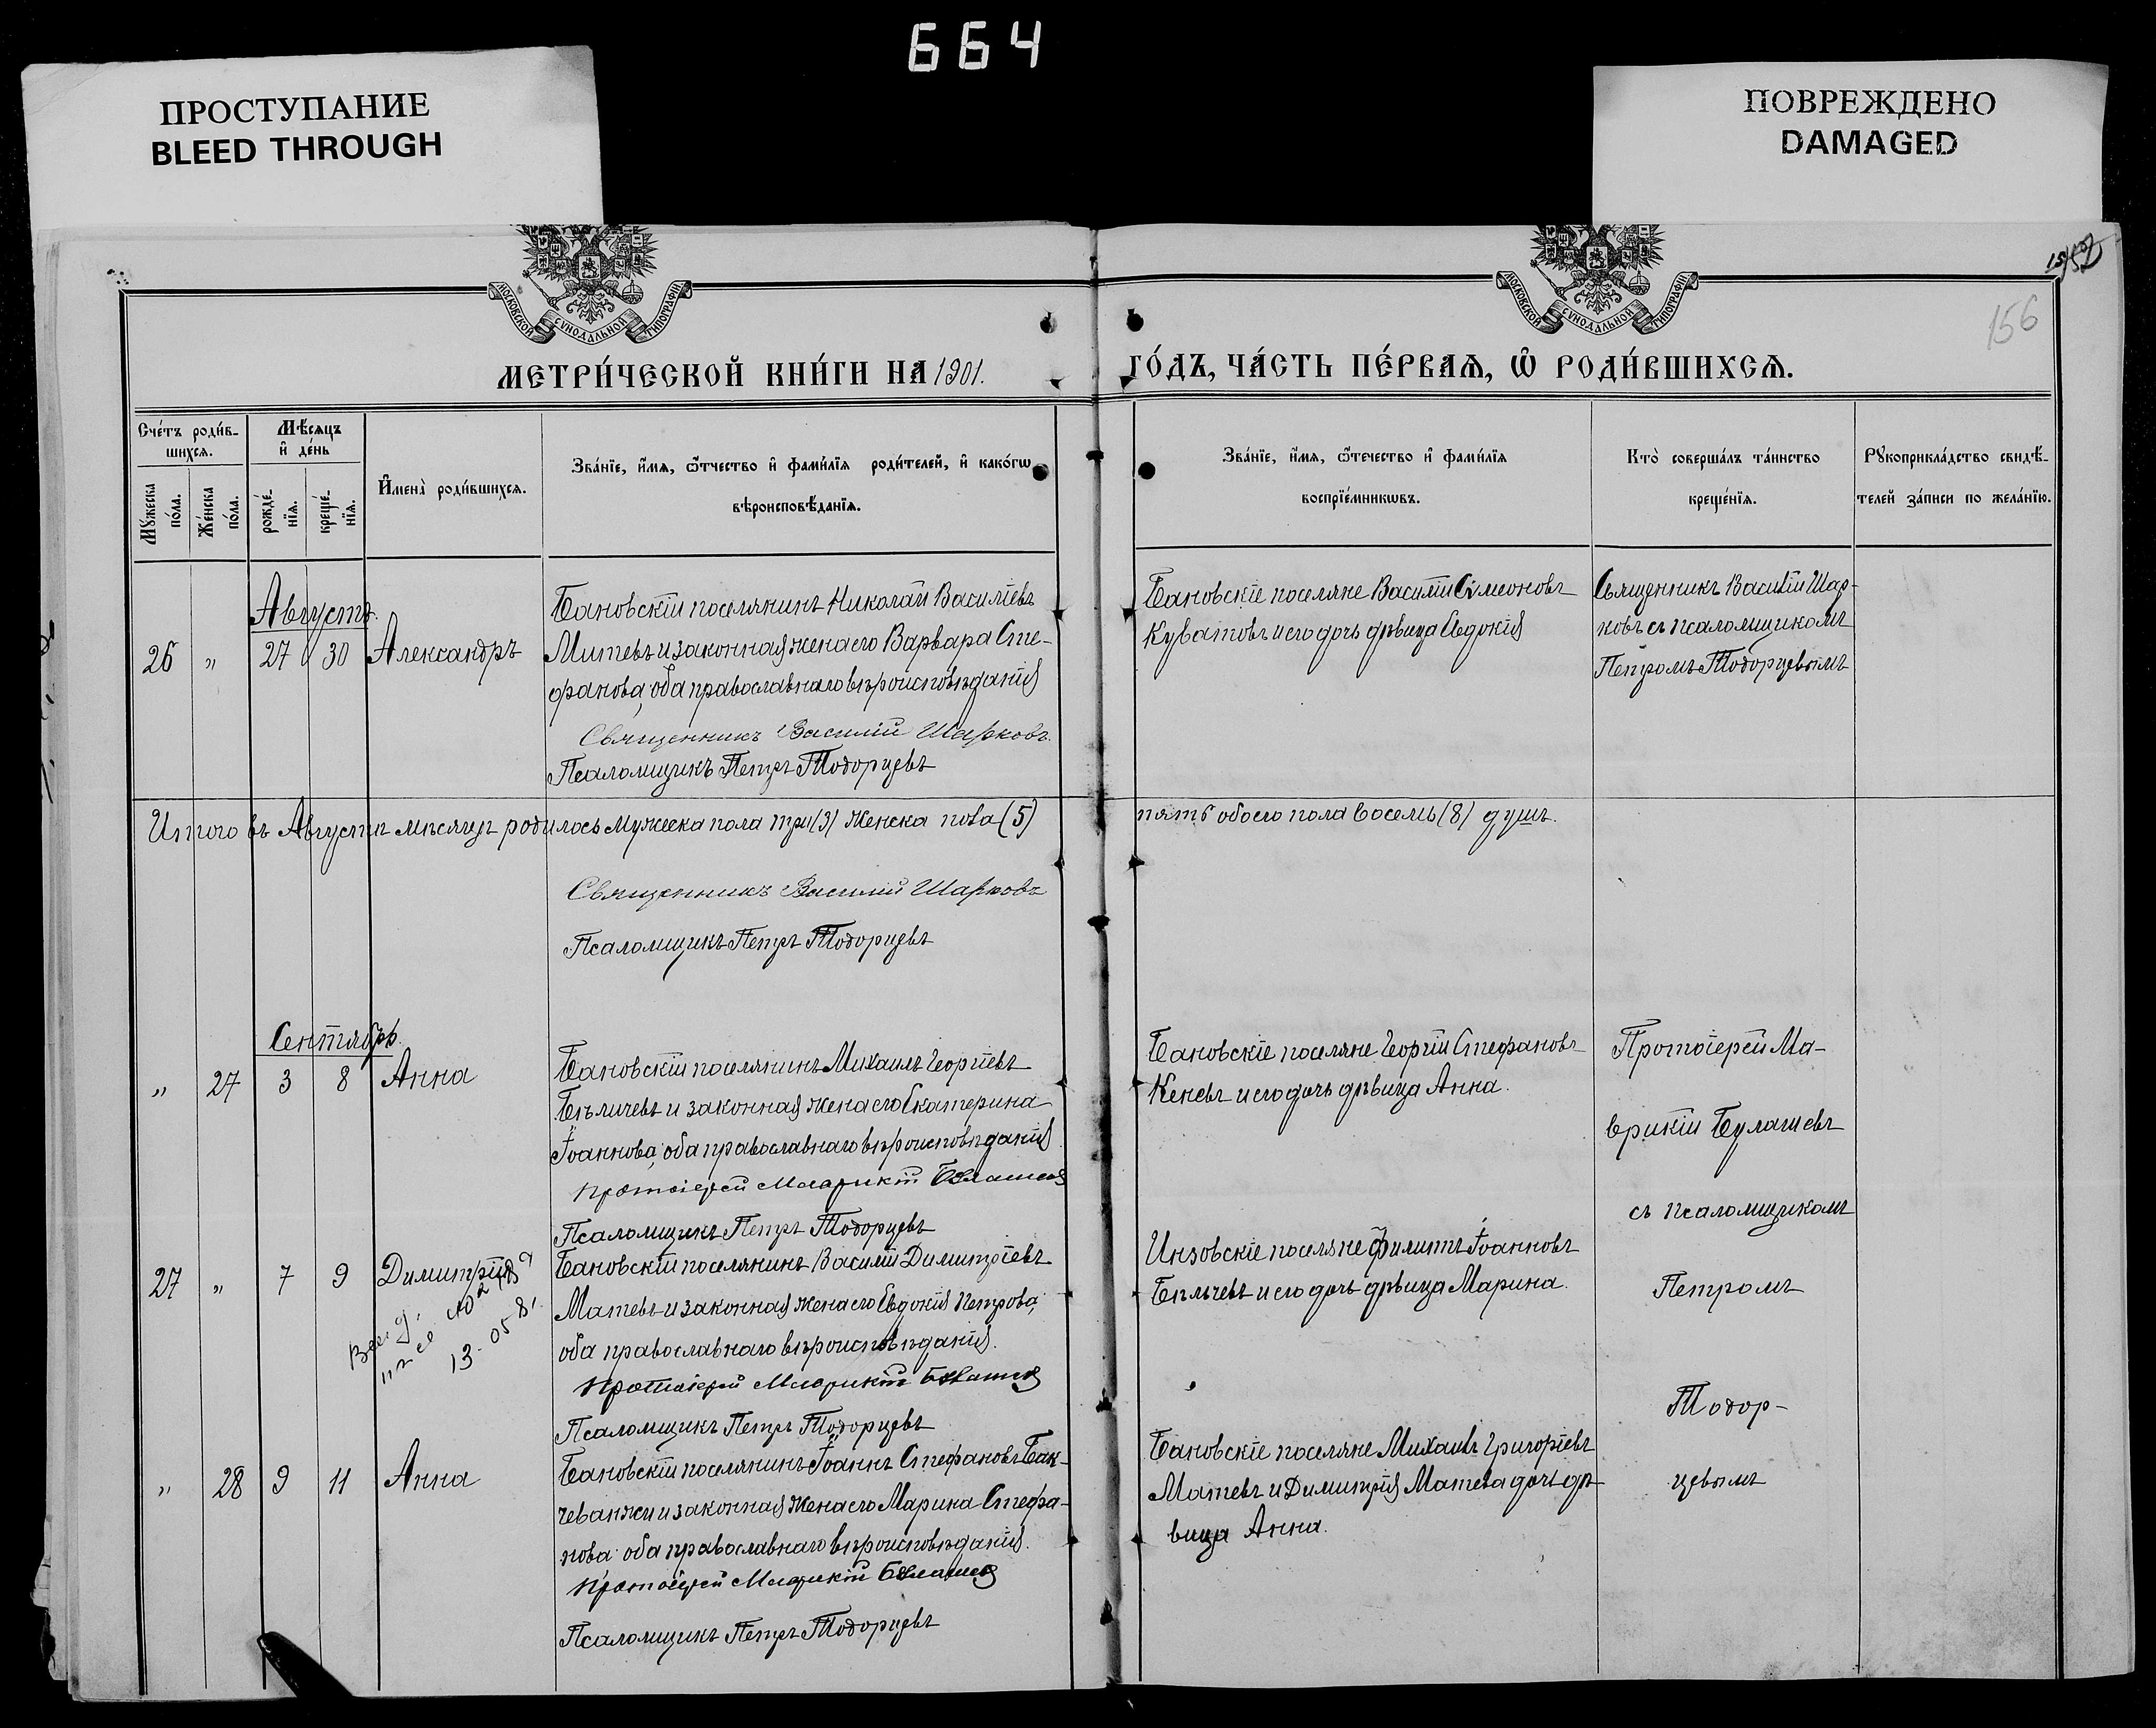 664
ПРОСТУПАНИЕ
BLEED THROUGH
ПОВРЕЖДЕНО
DAMAGED
156
МОСКОВСКОЙ СѴНОДАЛЬНОЙ ТИПОГРАФІИ
МОСКОВСКОЙ СѴНОДАЛЬНОЙ ТИПОГРАФІИ
МЕТРИ́ЧЕСКОЙ КНИ́ГИ НА 1901.
ГО́ДЪ, ЧА́СТЬ ПЕ́РВАѦ, Ѽ РОДИ́ВШИХСѦ.
Сче́тъ роди́в-
шихсѧ.
Мꙋ́жеска по́ла.
Же́нска по́ла.
Мѣ́сѧцъ
и҆ де́нь
рожде́-нїѧ.
креще́-нїѧ.
И҆мена̀ роди́вшихсѧ.
Зва́нїе, и҆́мѧ, ѻ҆́тчество и҆ фами́лїѧ роди́телей, и҆ како́гѡ
вѣроисповѣ́данїѧ.
Зва́нїе, и҆́мѧ, ѻ҆́течество и҆ фами́лїѧ
воспрїе́мникѡвъ.
Кто̀ соверша́лъ та́инство
креще́нїѧ.
Рꙋкоприкла́дство свидѣ́-
телей за́писи по жела́нїю.
Августъ.
26 " 27 30 Александръ
Бановскій поселянинъ Николай Василіевъ
Митевъ и законная жена его Варвара Сте-
фанова, оба православнаго вѣроисповѣданія
Священникъ Василій Шарковъ.
Псаломщикъ Петръ Тодорцевъ
Бановскіе поселяне Василій Симеоновъ
Куватовъ и его дочь дѣвица Евдокія
Священникъ Василій Шар-
ковъ съ псаломщикомъ
Петромъ Тодорцевымъ
Итого въ Августѣ мѣсяцѣ родилось мужеска пола три (3) женска пола (5)
пять обоего пола восемь (8) душъ.
Священникъ Василій Шарковъ
Псаломщикъ Петръ Тодорцевъ
Сентябрь.
" 27 3 8 Анна
Бановскій поселянинъ Михаилъ Георгіевъ
Бѣличевъ и законная жена его Екатерина
Іоаннова, оба православнаго вѣроисповѣданія
Протоіерей Маврикій Булашевъ
Псаломщикъ Петръ Тодорцевъ
Бановскіе поселяне Георгій Стефановъ
Кеневъ и его дочь дѣвица Анна.
Протоіерей Ма-
врикій Булашевъ
съ псаломщикомъ
Петромъ
Тодор-
цевымъ
27 " 7 9 Димитрій
13-05 81
Бановскій поселянинъ Василій Димитріевъ
Матевъ и законная жена его Евдокія Петрова,
оба православнаго вѣроисповѣданія.
Протоіерей Маврикій Булашевъ
Псаломщикъ Петръ Тодорцевъ
Инзовскіе поселяне Филиппъ Іоанновъ
Бѣльчевъ и его дочь дѣвица Марина.
" 28 9 11 Анна
Бановскій поселянинъ Іоаннъ Стефановъ Бак-
чеванжи и законная жена его Марина Стефа-
нова оба православнаго вѣроисповѣданія.
Протоіерей Маврикій Булашевъ
Псаломщикъ Петръ Тодорцевъ
Бановскіе поселяне Михаилъ Григоріевъ
Матевъ и Димитрія Матева дочь дѣ-
вица Анна.